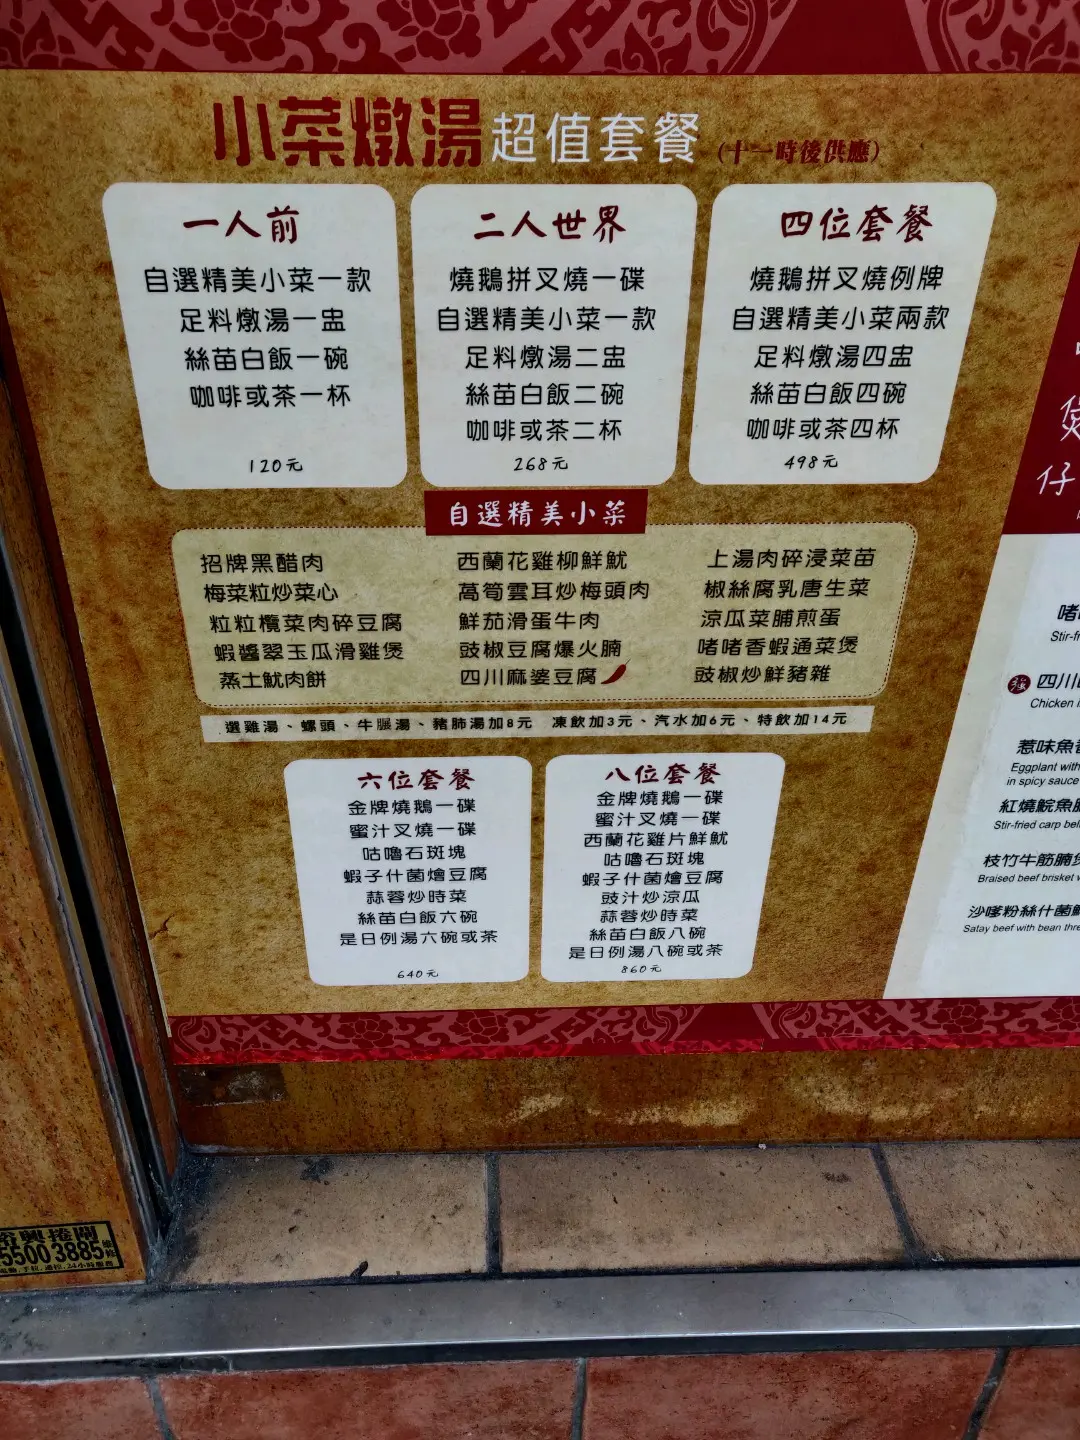 小菜燉湯超值套餐 (十一時後供應)
一人前
自選精美小菜一款
足料燉湯一盅
絲苗白飯一碗
咖啡或茶一杯
120元
二人世界
燒鵝拼叉燒一碟
自選精美小菜一款
足料燉湯二盅
絲苗白飯二碗
咖啡或茶二杯
268元
四位套餐
燒鵝拼叉燒例牌
自選精美小菜兩款
足料燉湯四盅
絲苗白飯四碗
咖啡或茶四杯
498元
自選精美小菜
招牌黑醋肉
梅菜粒炒菜心
粒粒欖菜肉碎豆腐
蝦醬翠玉瓜滑雞煲
蒸土魷肉餅
西蘭花雞柳鮮魷
萵筍雲耳炒梅頭肉
鮮茄滑蛋牛肉
豉椒豆腐爆火腩
四川麻婆豆腐
上湯肉碎浸菜苗
椒絲腐乳唐生菜
涼瓜菜脯煎蛋
啫啫香蝦通菜煲
豉椒炒鮮豬雜
選雞湯、螺頭、牛𦟌湯、豬肺湯加8元 凍飲加3元、汽水加6元、特飲加14元
六位套餐
金牌燒鵝一碟
蜜汁叉燒一碟
咕嚕石斑塊
蝦子什菌燴豆腐
蒜蓉炒時菜
絲苗白飯六碗
是日例湯六碗或茶
640元
八位套餐
金牌燒鵝一碟
蜜汁叉燒一碟
西蘭花雞片鮮魷
咕嚕石斑塊
蝦子什菌燴豆腐
豉汁炒涼瓜
蒜蓉炒時菜
絲苗白飯八碗
是日例湯八碗或茶
860元
煲
仔
啫
Stir-fr
四川
Chicken
惹味魚
Eggplant with
in spicy sauce
紅燒鯇魚
Stir-fried carp bel
枝竹牛筋腩
Braised beef brisket
沙嗲粉絲什菌
Satay beef with bean thre
興捲閘
5500 3885